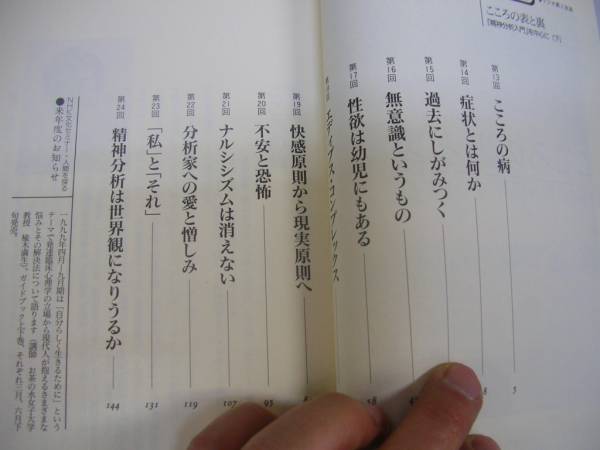 こころの表と裏
『精神分析入門』を中心に(下)
第13回 こころの病 5
第14回 症状とは何か
第15回 過去にしがみつく
第16回 無意識というもの
第17回 性欲は幼児にもある 58
エディプス・コンプレックス
第19回 快感原則から現実原則へ
第20回 不安と恐怖 95
第21回 ナルシシズムは消えない 107
第22回 分析家への愛と憎しみ 119
第23回 「私」と「それ」 131
第24回 精神分析は世界観になりうるか 144
NHK文化セミナー・人間を探る
●来年度のお知らせ
一九九九年四月~九月期は「自分らしく生きるために」という
テーマで発達臨床心理学の立場から現代人が抱えるさまざまな
悩みとその解決法について語ります(講師 お茶の水女子大学
教授
ガイドブック上下巻、それぞれ三月、六月下
旬発売。